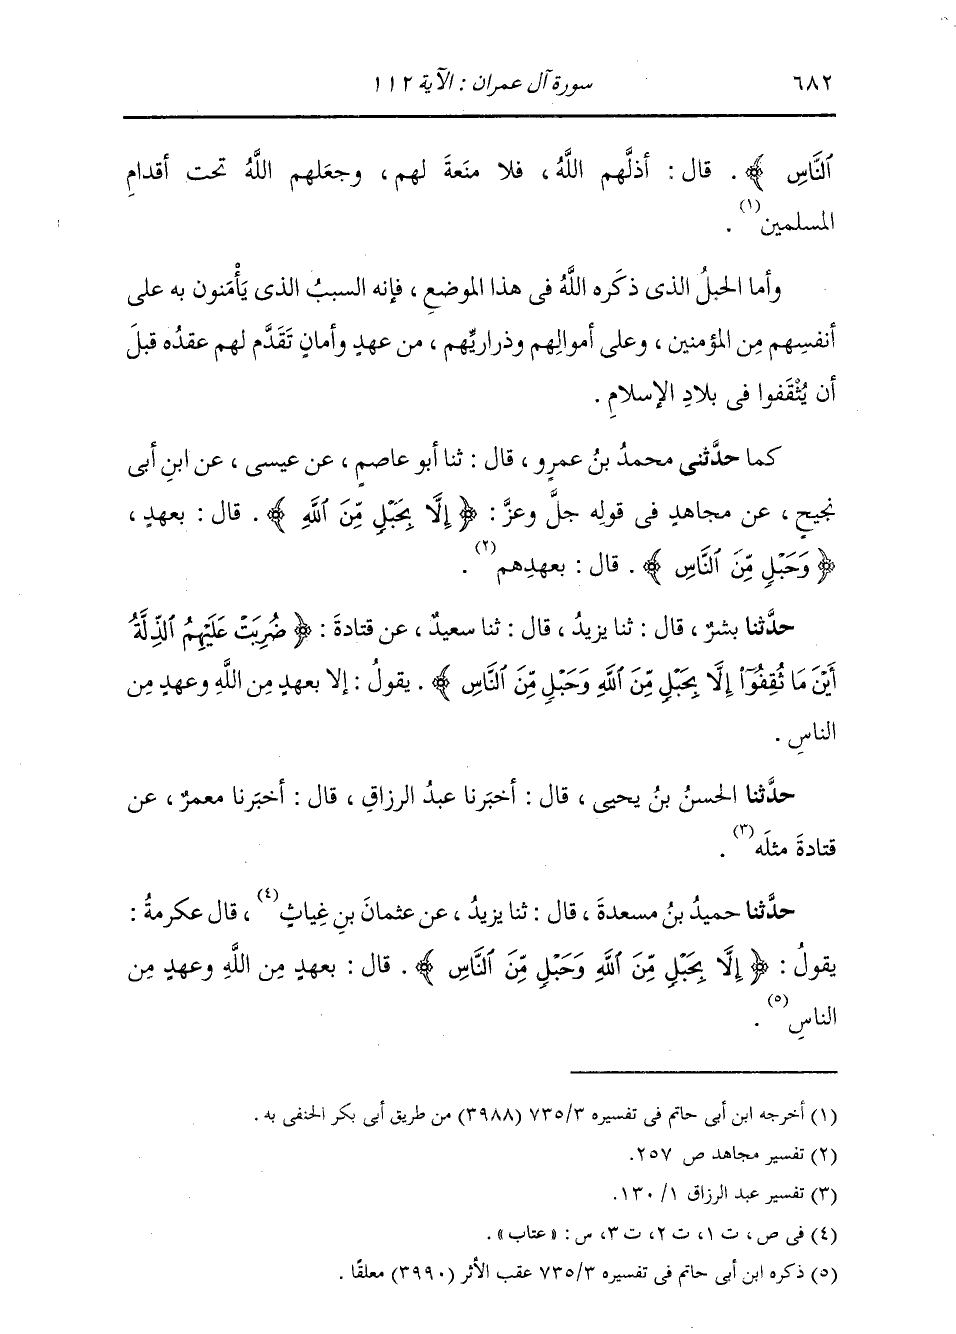 ٦٨٢ سورة آل عمران : الآية ١١٢
ٱلنَّاسِ ﴾ . قال : أذلَّهم اللَّهُ ، فلا منَعةَ لهم ، وجعَلهم اللَّهُ تحت أقدامِ
المسلمين(١) .
وأما الحبلُ الذى ذكَره اللَّهُ فى هذا الموضعِ ، فإنه السببُ الذى يَأْمَنون به على
أنفسِهم مِن المؤمنين ، وعلى أموالِهم وذراريِّهم ، من عهدٍ وأمانٍ تَقَدَّم لهم عقدُه قبلَ
أن يُثْقَفوا فى بلادِ الإسلامِ .
كما حدَّثنى محمدُ بنُ عمرٍو ، قال : ثنا أبو عاصمٍ ، عن عيسى ، عن ابنِ أبى
نجيحٍ ، عن مجاهدٍ فى قولِه جلَّ وعزَّ : ﴿ إِلَّا بِحَبْلٍ مِّنَ ٱللَّهِ ﴾ . قال : بعهدٍ ،
﴿ وَحَبْلٍ مِّنَ ٱلنَّاسِ ﴾ . قال : بعهدِهم(٢) .
حدَّثنا بشرٌ ، قال : ثنا يزيدُ ، قال : ثنا سعيدٌ ، عن قتادةَ : ﴿ ضُرِبَتْ عَلَيْهِمُ ٱلذِّلَّةُ
أَيْنَ مَا ثُقِفُوٓا۟ إِلَّا بِحَبْلٍ مِّنَ ٱللَّهِ وَحَبْلٍ مِّنَ ٱلنَّاسِ ﴾ . يقولُ : إلا بعهدٍ مِن اللَّهِ وعهدٍ مِن
الناسِ .
حدَّثنا الحسنُ بنُ يحيى ، قال : أخبَرنا عبدُ الرزاقِ ، قال : أخبَرنا معمرٌ ، عن
قتادةَ مثلَه(٣) .
حدَّثنا حميدُ بنُ مسعدةَ ، قال : ثنا يزيدُ ، عن عثمانَ بنِ غِياثٍ(٤) ، قال عكرمةُ :
يقولُ : ﴿ إِلَّا بِحَبْلٍ مِّنَ ٱللَّهِ وَحَبْلٍ مِّنَ ٱلنَّاسِ ﴾ . قال : بعهدٍ مِن اللَّهِ وعهدٍ مِن
الناسِ(٥) .
(١) أخرجه ابن أبى حاتم فى تفسيره ٧٣٥/٣ (٣٩٨٨) من طريق أبى بكر الحنفى به .
(٢) تفسير مجاهد ص ٢٥٧.
(٣) تفسير عبد الرزاق ١/ ١٣٠.
(٤) فى ص، ت ١، ت ٢، ت ٣، س : «عتاب» .
(٥) ذكره ابن أبى حاتم فى تفسيره ٧٣٥/٣ عقب الأثر (٣٩٩٠) معلقًا .